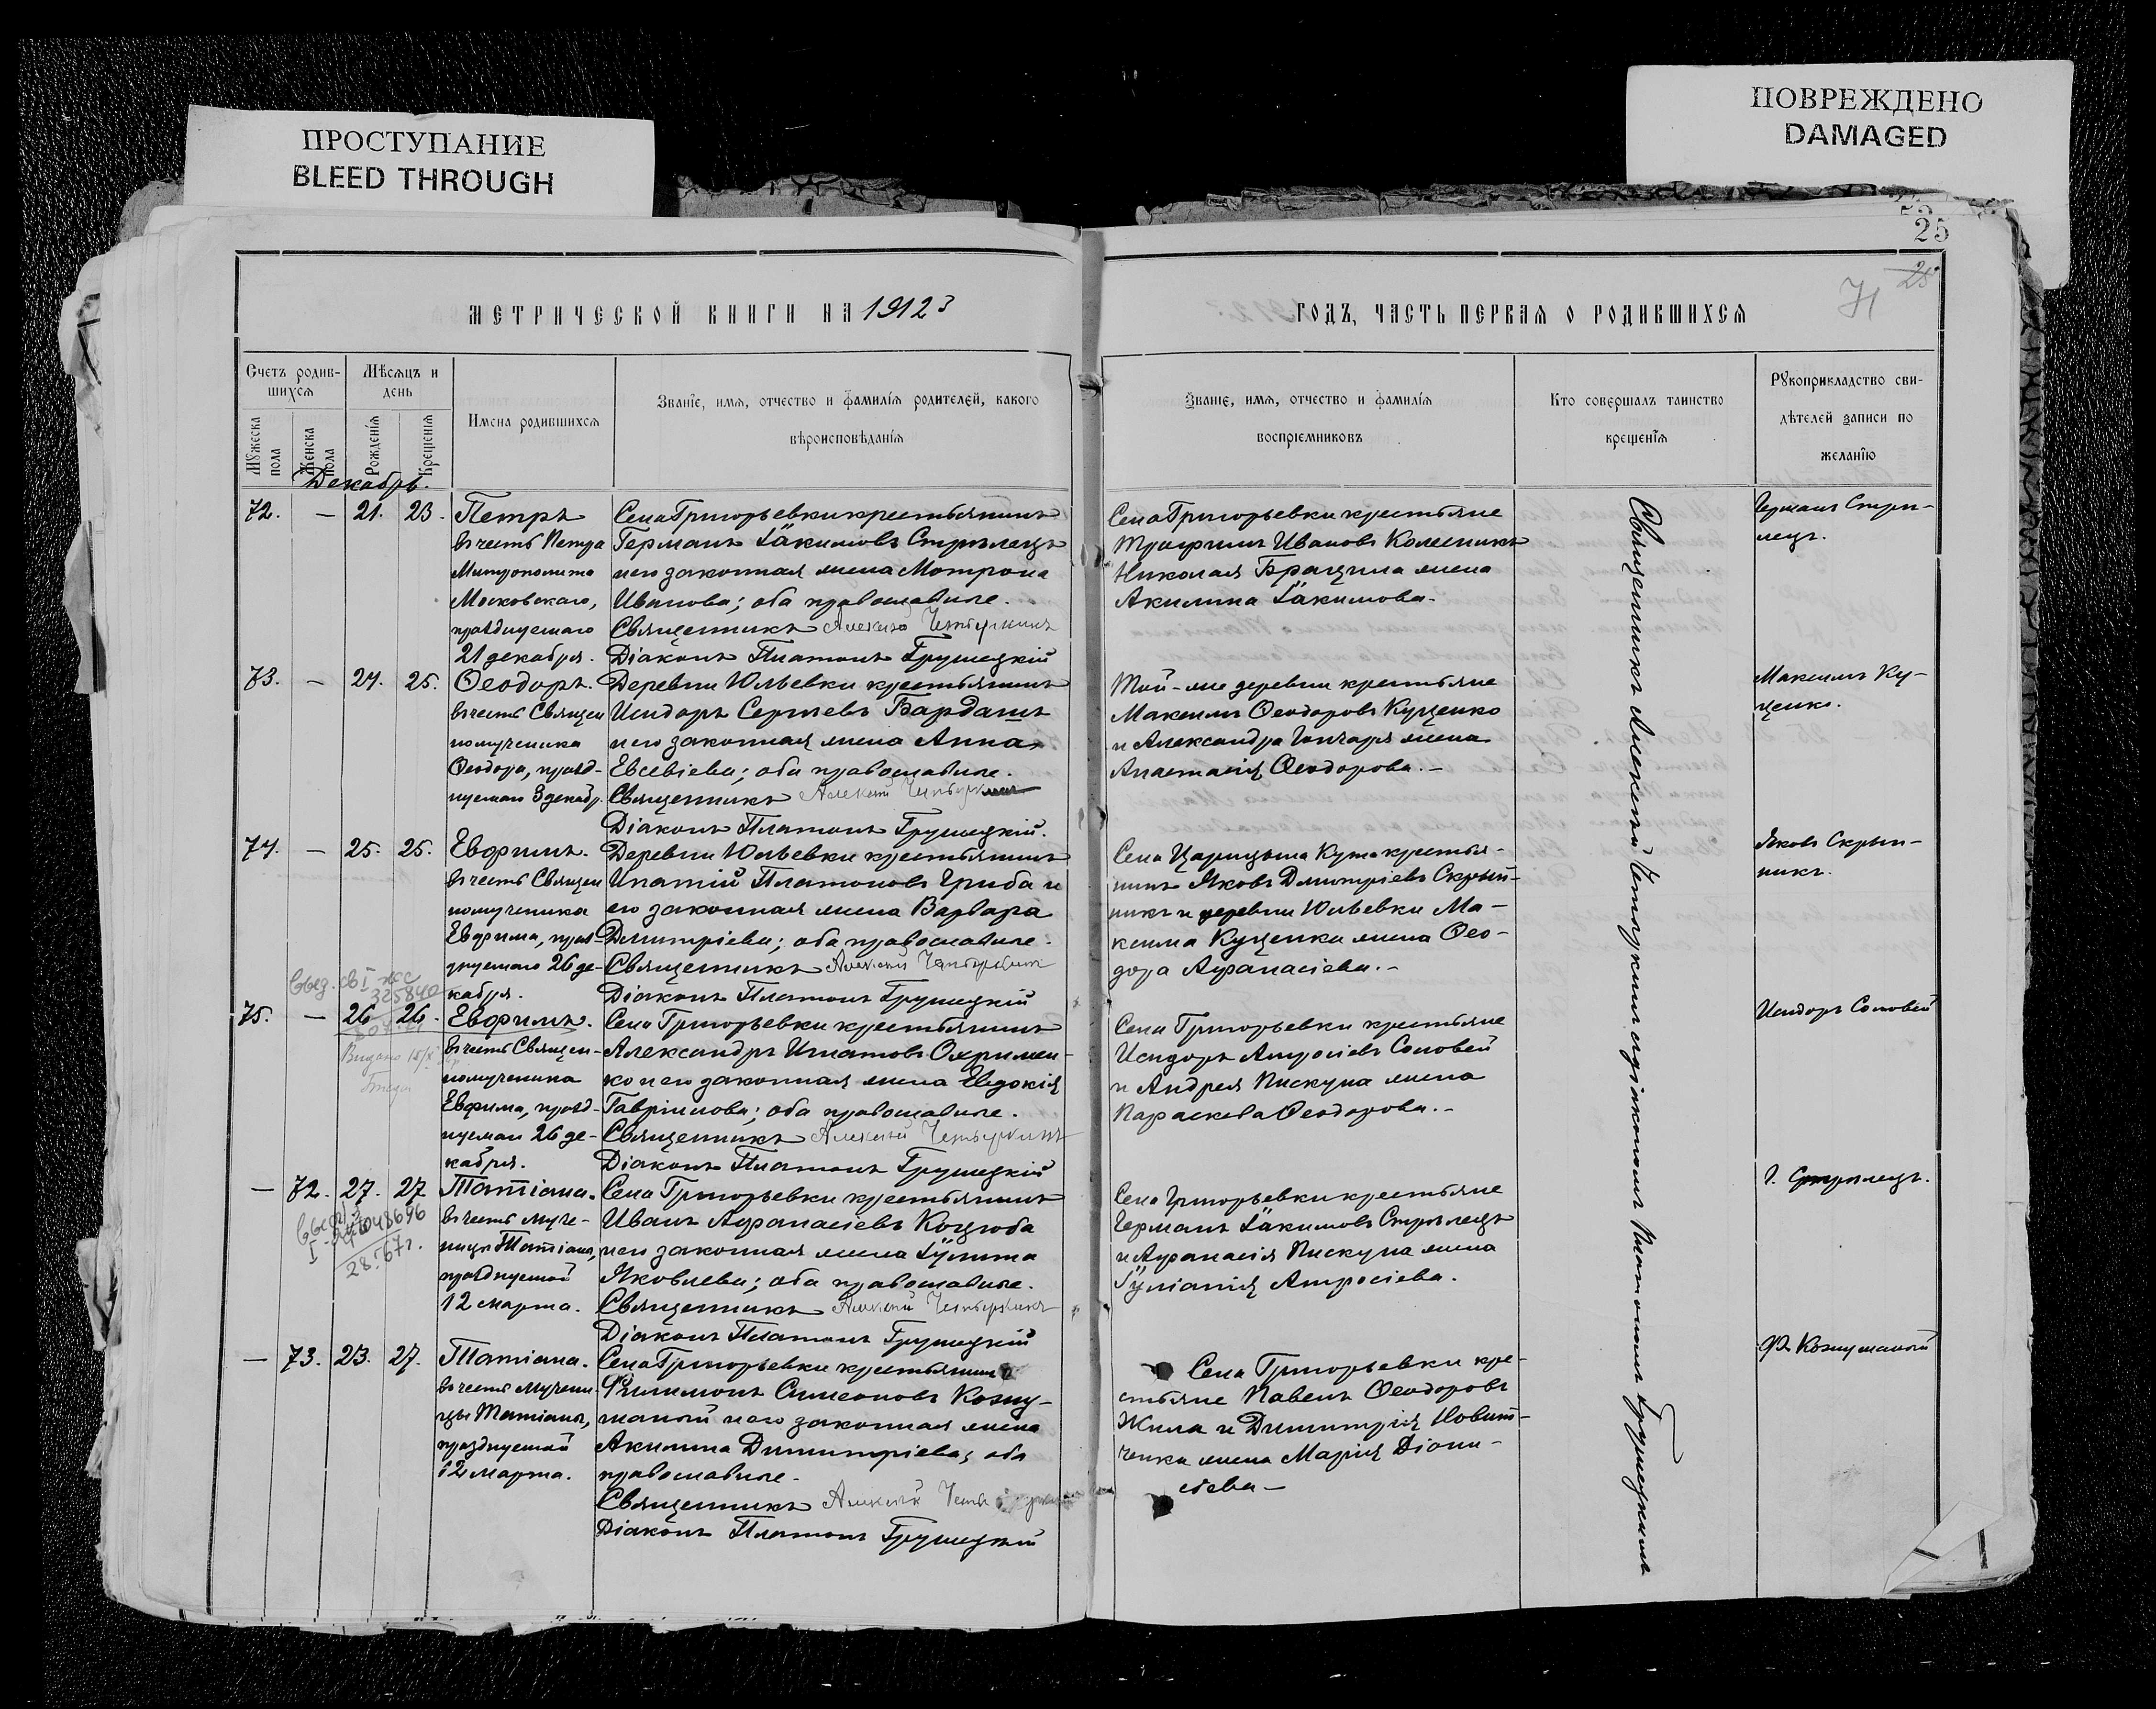 ПРОСТУПАНИЕ
BLEED THROUGH
ПОВРЕЖДЕНО
DAMAGED
25
25
71
МЕТРИЧЕСКОЙ КНИГИ НА 1912 г
ГОДЪ, ЧАСТЬ ПЕРВАЯ О РОДИВШИХСЯ
Счетъ родив-
шихся
Мѣсяцъ и
день
Мужеска пола
Женска пола
Рожденія
Крещенія
Имена родившихся
Званіе, имя, отчество и фамилія родителей, какого
вѣроисповѣданія
Званіе, имя, отчество и фамилія
воспріемниковъ
Кто совершалъ таинство
крещенія
Рукоприкладство сви-
дѣтелей записи по
желанію
Декабрь.
72. — 21. 23.
Петръ
въ честь Петра
Митрополита
Московскаго,
празднуемаго
21 декабря.
Села Григорьевки крестьянинъ
Германъ Іакимовъ Стрѣлецъ
и его законная жена Мотрона
Иванова; оба православные.
Священникъ Алексей Четыркинъ
Діаконъ Платонъ Грушецкій
Села Григорьевки крестьяне
Трифилъ Ивановъ Колесникъ
Николая Брацила жена
Акилина Іакимова.
Германъ Стрѣ-
лецъ.
73. — 24. 25.
Ѳеодоръ.
въ честь Священ
номученика
Ѳеодора, празд-
нуемаго 3 декабр.
Деревни Юльевки крестьянинъ
Исидоръ Сергіевъ Бардашъ
и его законная жена Анна
Евсевіева; оба православные.
Священникъ Алексей
Діаконъ Платонъ Грушецкій.
Той-же деревни крестьяне
Максимъ Ѳеодоровъ Куценко
и Александра Гончаря жена
Анастасія Ѳеодорова.—
Максимъ Ку-
ценко.
74. — 25. 25.
Евфимъ.
въ честь Священ
номученика
Евфима, празд-
нуемаго 26 де-
кабря.
Деревни Юльевки крестьянинъ
Ипатій Платоновъ Гриба и
его законная жена Варвара
Димитріева; оба православные.
Священникъ Алексей Четыркинъ
Діаконъ Платонъ Грушецкій
Села Царицына Кута крестья-
нинъ Яковъ Дмитріевъ Скрып-
никъ и деревни Юльевки Ма-
ксима Куценка жена Ѳео-
дора Афанасіева.—
Яковъ Скрып-
никъ.
325840
75. — 26 26.
Евфимъ.
въ честь Священ-
номученика
Евфима, празд-
нуемаго 26 де-
кабря.
Села Григорьевки крестьянинъ
Александръ Игнатовъ Охримен-
ко и его законная жена Евдокія
Гавріилова; оба православные.
Священникъ Алексей Четыркинъ
Діаконъ Платонъ Грушецкій
Села Григорьевки крестьяне
Исидоръ Амвросіевъ Соловей
и Андрея Пискуна жена
Параскева Ѳеодорова.—
Исидоръ Соловей
— 72. 27. 27
Татіана.
въ честь муче-
ницы Татіаны,
празднуемой
12 марта.
Села Григорьевки крестьянинъ
Иванъ Афанасіевъ Коцюба
и его законная жена Іустина
Яковлева; оба православные.
Священникъ Алексей Четыркинъ
Діаконъ Платонъ Грушецкій
Села Григорьевки крестьяне
Германъ Іакимовъ Стрѣлецъ
и Афанасія Пискуна жена
Іуліанія Амвросіева.
Г. Стрѣлецъ.
— 73. 23. 27.
Татіана.
въ честь Мучени
цы Татіаны,
празднуемой
12 марта.
Села Григорьевки крестьянинъ
Филимонъ Симеоновъ Кожу-
шаный и его законная жена
Акилина Димитріева; оба
православные.
Священникъ Алексей
Діаконъ Платонъ Грушецкій
Села Григорьевки кре-
стьяне Павелъ Ѳеодоровъ
Жила и Димитрія Новит-
ченка жена Марія Діони-
сіева—
Ф. Кожушаный
Священникъ Алексей Четыркинъ съ діакономъ Платономъ Грушецкимъ